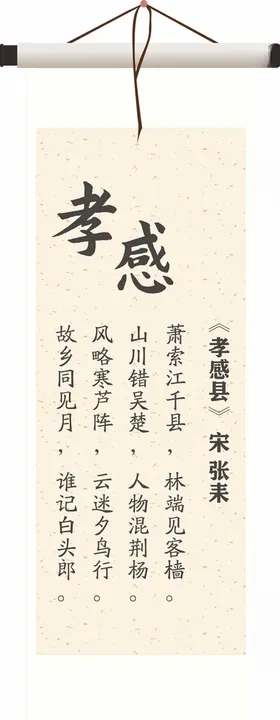 孝感
《孝感县》 宋 张耒
萧索江千县，林端见客樯。
山川错吴楚，人物混荆杨。
风略寒芦阵，云迷夕鸟行。
故乡同见月，谁记白头郎。